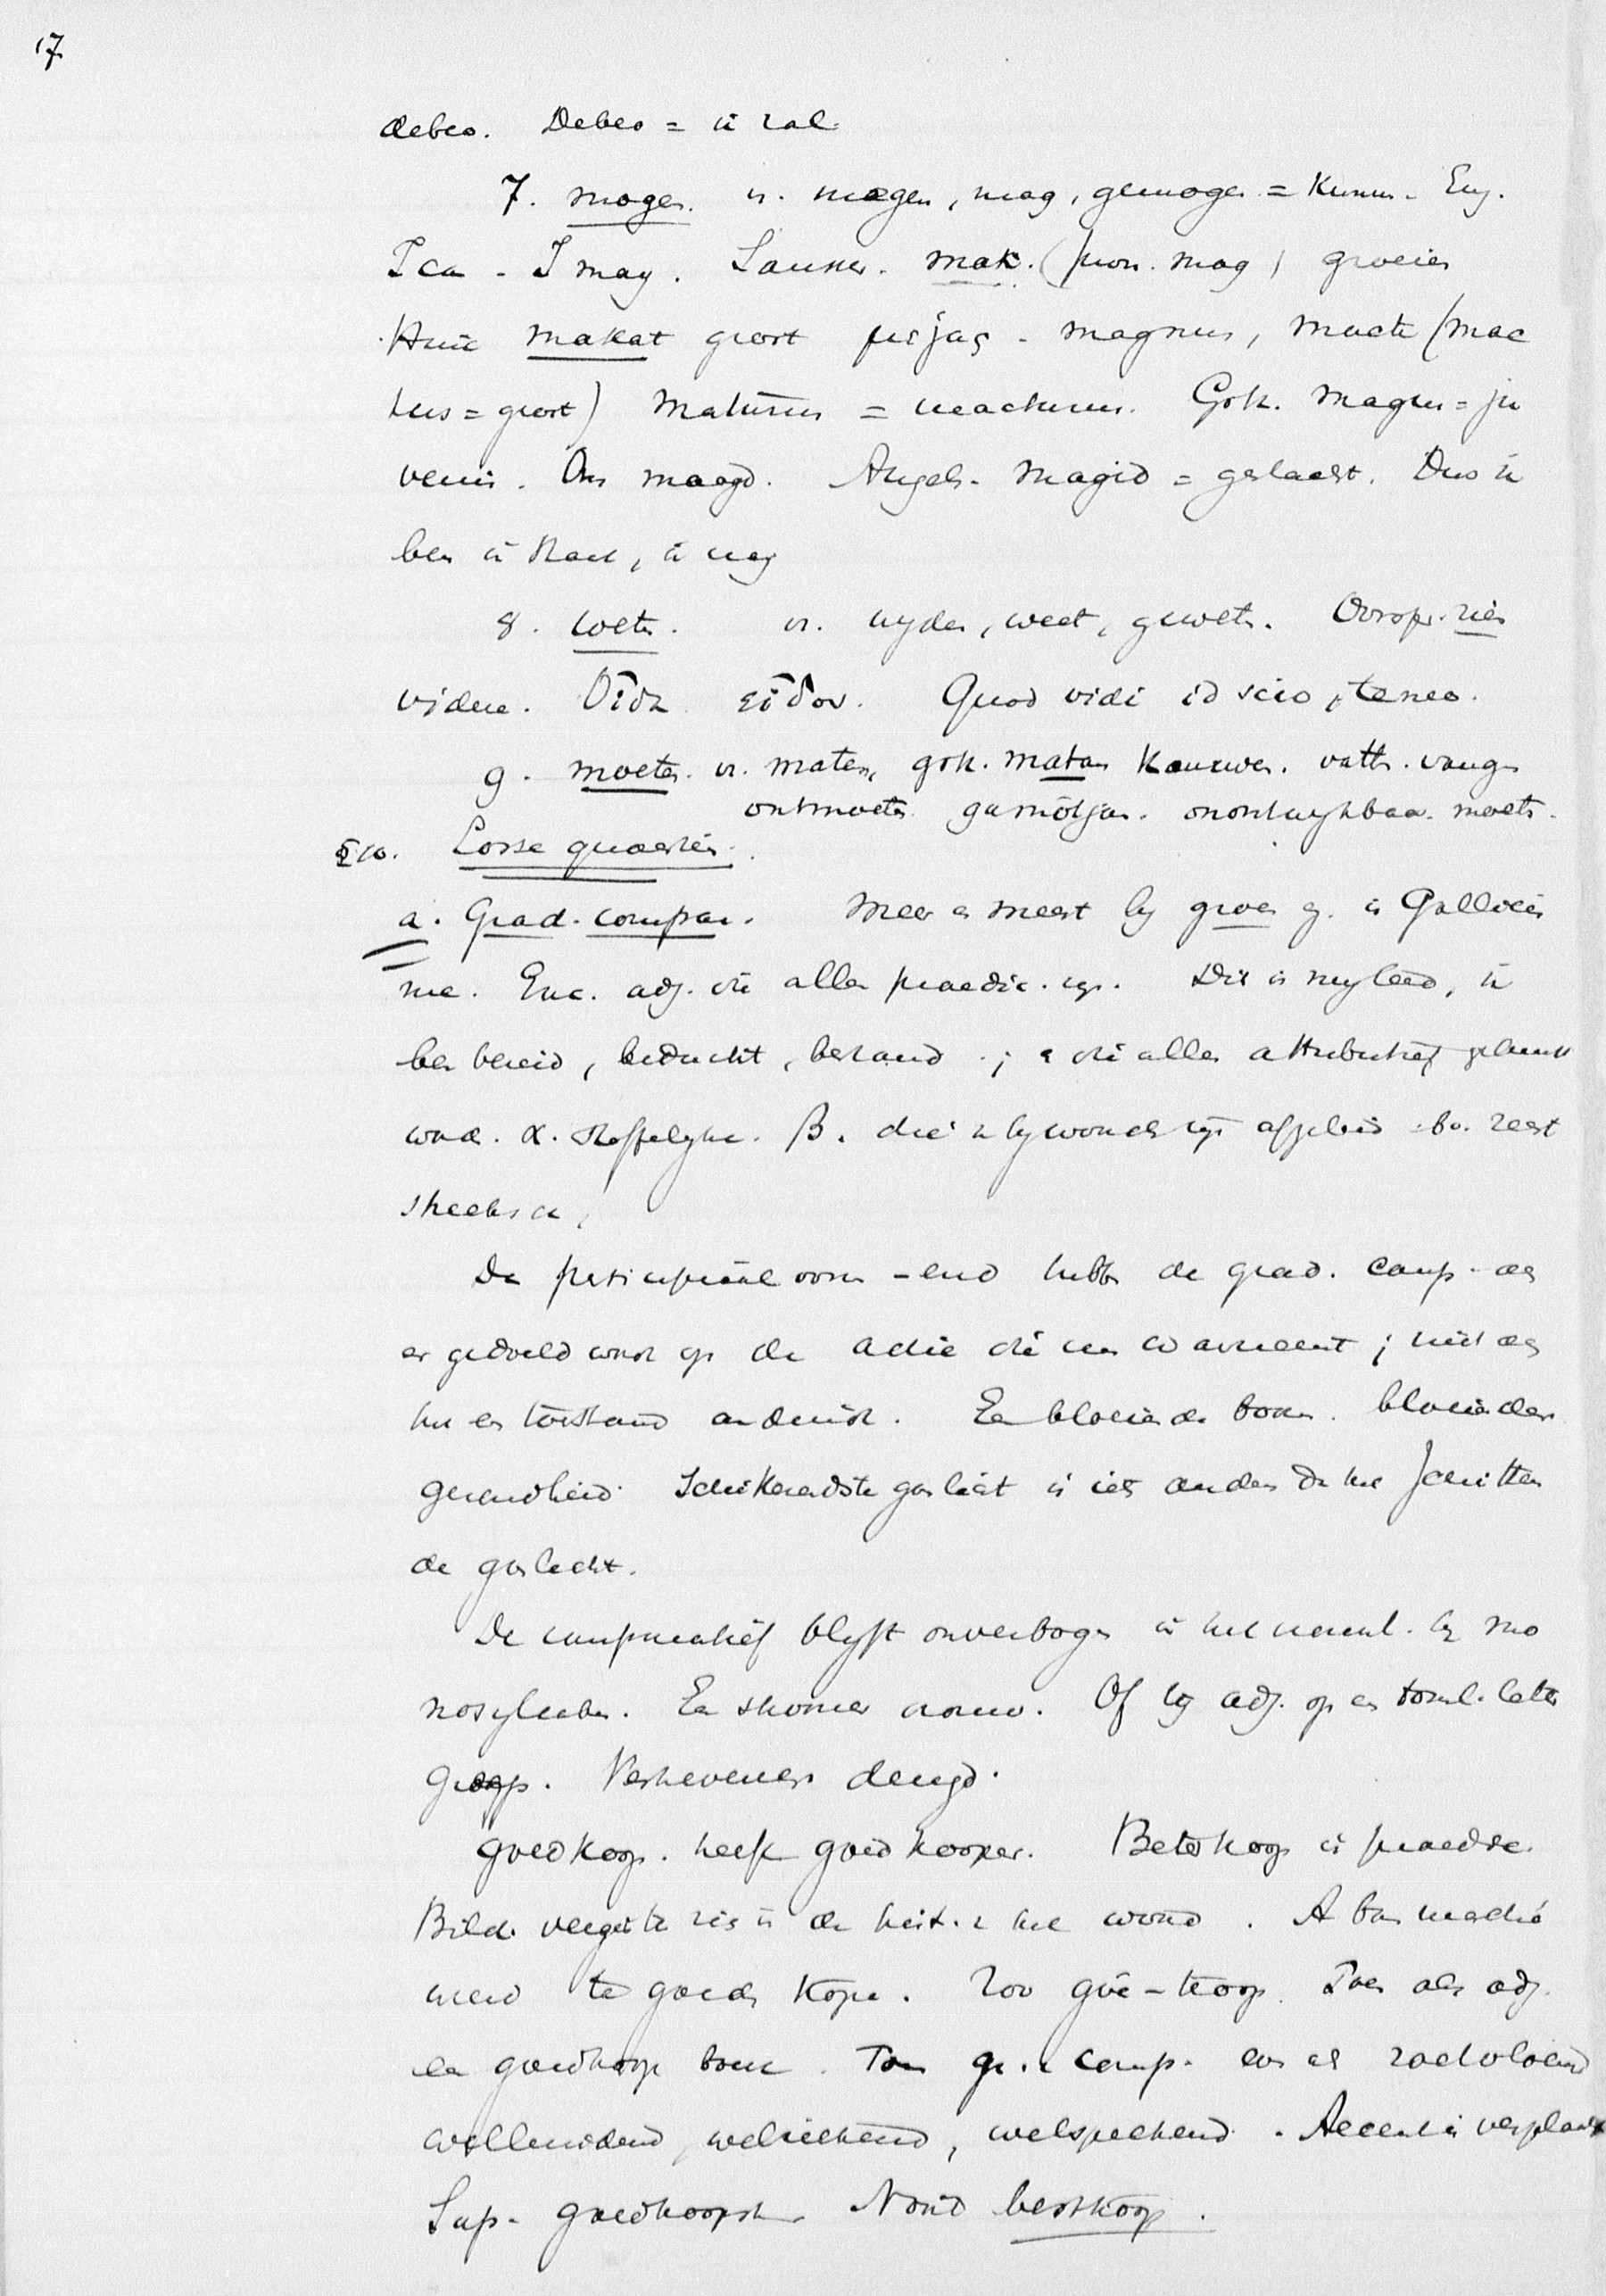 17
debeo. Debeo = ik zal.
7. mogen. v. mogen, mag, gemogen = kunnen. Eng.
I can - I may. Sanskr. mak. (pron. mag) groeien
Hinc makat groot μεγας - magnus, macte (mac
tus = groot) maturus = macturus. Goth. magus = ju
venis. Ons maagd. Angels. magid = geslacht. Dus ik
ben in staat, ik mag
8. weten. v. wyden, weet, geweten. Oorspr. zien
videre. Οἶδα εἶδον. Quod vidi id scio, teneo.
9. moeten. v. maten, goth. matan kauwen. vatten. vangen
ontmoeten gamôtjan. onontwykbaar moeten.
§ 10. Losse quaestien.
a. Grad. compar. Meer en meest by groen is Gallicis
me. Enc. adj. die allen praedic. zyn. Dit is my leed, ik
ben bereid, beducht, bekand; en die allen attributief gebruikt
word. α. stoffelyke. β. die v bywoorden zyn afgeleid
steeksce,
De participiale vorm -end hebben de grad. comp. als
er gedoeld word op de actie die men waarneemt; niet als
het een toestand aanduidt. Een bloeiende boom. bloeiender
gezondheid. Schitterendste gaslicht is iets anders dan het schitteren
de gaslicht.
De comparatief blyft onverbogen in het vrouwl. by mo
nosyllaben. Een schooner vrouw. Of by adj. op en toonl. letter
greep. Verhevener deugd.
goedkoop. heeft goedkooper. Beterkoop is praedic.
Bild. vergiste zich in de heit. v het woord. A bon marché
werd te goeden koope. Zoo goe-koop. Toen als adj.
een goedkoop boek. Toen gr. v comp. even als zoetvloeiend
welluidend, welriekend, welsprekend. Accent is verplaatst
Sup. goedkoopst. Nooit bestkoop.